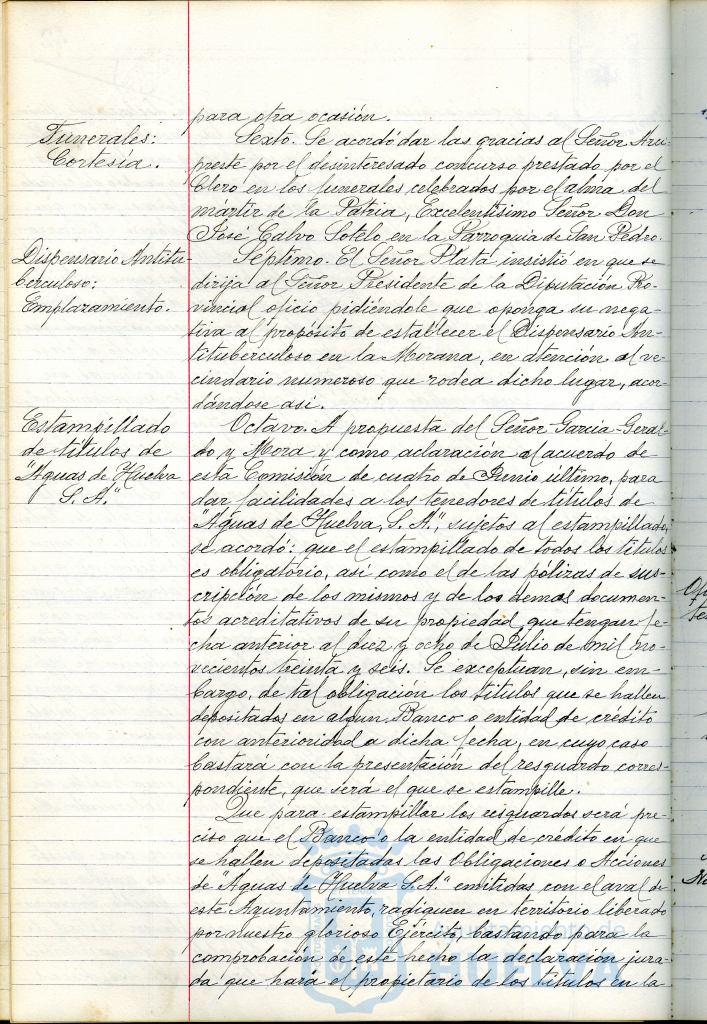 para otra ocasión.
Funerales:
Cortesía.
Sexto. Se acordó dar las gracias al Señor Arci-
preste por el desinteresado concurso prestado por el
Clero en los funerales celebrados por el alma del
mártir de la Patria, Excelentísimo Señor Don
José Calvo Sotelo en la Parroquia de San Pedro.
Dispensario Antitu-
berculoso:
Emplazamiento.
Septimo. El Señor Plata insistió en que se
dirija al Señor Presidente de la Diputación Pro-
vincial oficio pidiéndole que oponga su nega-
tiva al propósito de establecer el Dispensario An-
tituberculoso en la Morana, en atención al ve-
cindario numeroso que rodea dicho lugar, acor-
dándose así.
Estampillado
de títulos de
"Aguas de Huelva
S. A."
Octavo. A propuesta del Señor Garcia-Geral-
do y Mora y como aclaración al acuerdo de
esta Comisión de cuatro de Junio último, para
dar facilidades a los tenedores de títulos de
"Aguas de Huelva, S. A.", sujetos al estampillado,
se acordó: que el estampillado de todos los títulos
es obligatorio, así como el de las pólizas de sus-
cripción de los mismos y de los demas documen-
tos acreditativos de su propiedad que tengan fe-
cha anterior al diez y ocho de Julio de mil no-
vecientos treinta y seis. Se exceptuan, sin em-
bargo, de tal obligación los títulos que se hallen
depositados en algun Banco o entidad de crédito
con anterioridad a dicha fecha, en cuyo caso
bastará con la presentación del resguardo corres-
pondiente, que será el que se estampille.
Que para estampillar los resguardos será pre-
ciso que el Banco o la entidad de crédito en que
se hallen depositadas las Obligaciones o Acciones
de "Aguas de Huelva S. A." emitidas con el aval de
este Ayuntamiento, radiquen en territorio liberado
por nuestro glorioso Ejército, bastando para la
comprobación de este hecho la declaración jura-
da que hará el propietario de los títulos en la
HUELVA